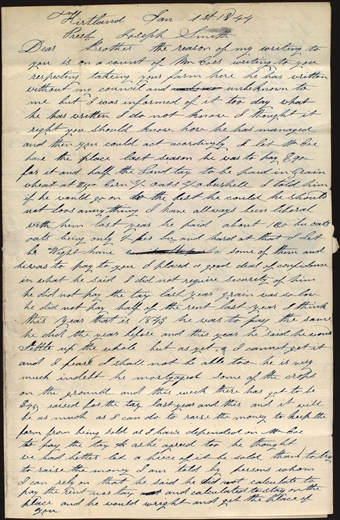 Kirtland Jan 1st 1844
Presd Joseph Smith
Dear Brother the reason of my writing to
you is on account of Mr Coes writing to you
respecting taking your farm here he has written
without my council and unbeknown to
me but I was informed of it too day what
he has written I do not know I thought it
right you should know how he has managed
and then you could act acordingly I let Mr Coe
have the place last season he was to pay
for it and half the land tax to be paid in grain
wheat at corn oats bushell I told him
if he would go on the best he could he should
not loos anything I have allways been liberal
with him last year he paid about he calls
oats being only and hard at that I let
he might have some of them and
was to pay to you I placed a good deal of confidence
in what he said I did not require security of him
he did not pay the tax last year grain was so low
he did not pay half of the rent last year I think
this year that is 1843 he was to pay the same
as the year before and this year he said he would
settle up the whole but as yet I cannot get it
and I fear I shall not be able too he is very
much indebt he mortgaged some of the crops
on the ground and this week there has got to be
raised for the tax last year and this and it will
be as much as I can do to raise the money to keep the
farm from being sold as I have depended on Mr Coe
to pay the tax as he agreed too he thought
we had better let a piece of it be sold than to try
to raise the money I am told by persons whom
I can rely on that he did not calculate to
pay the rent nor tax and calculated to stay on the
place and he would weight and get the place of
you